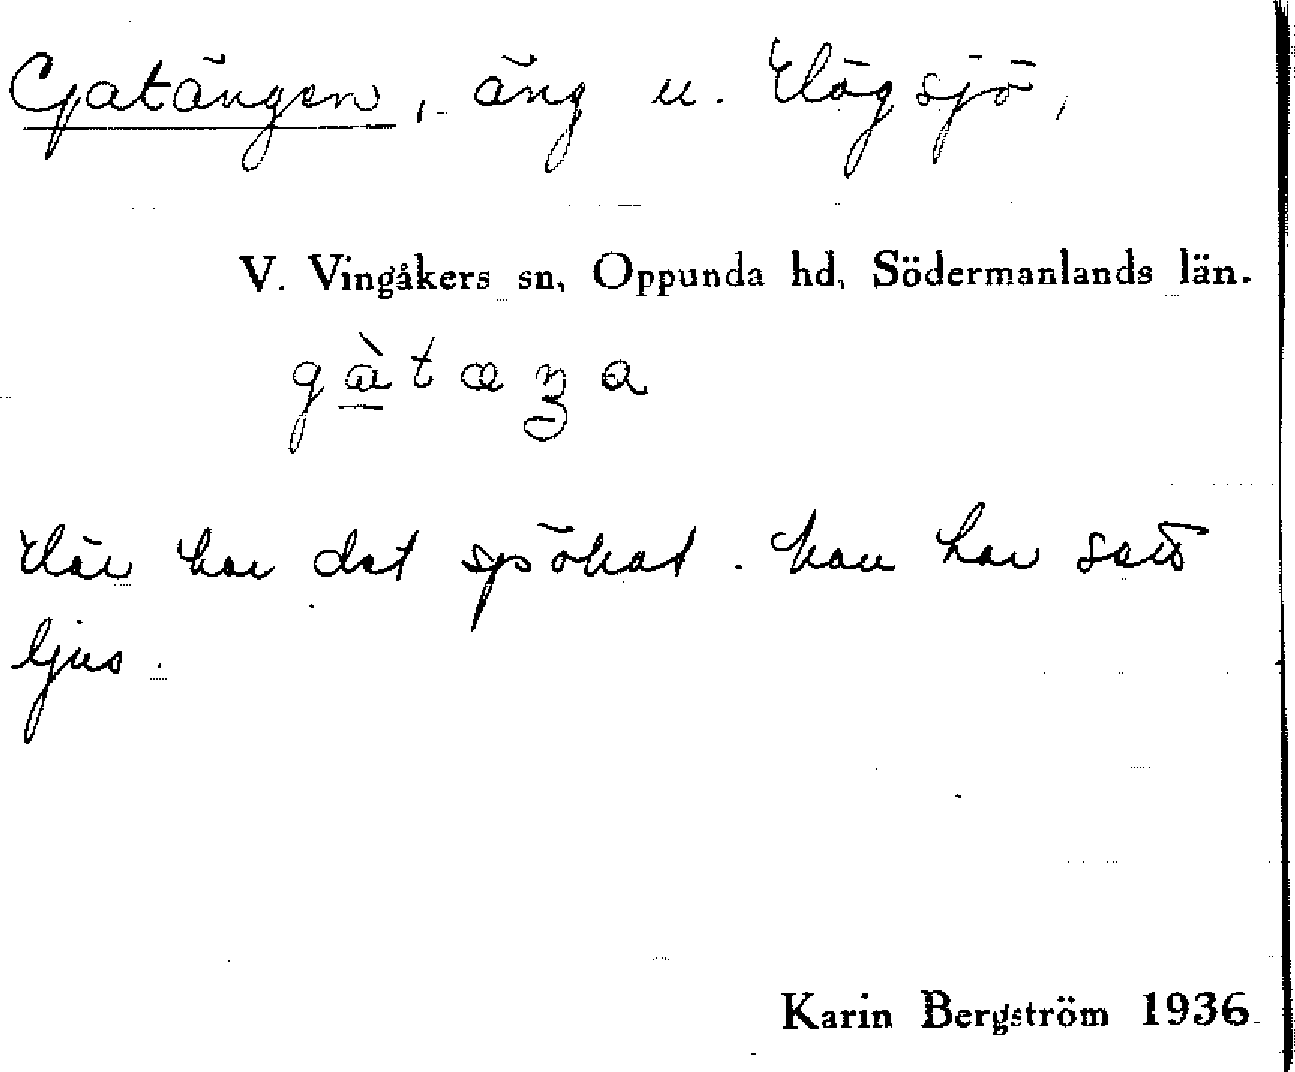 Gatängen, äng u. Högsjö,
V. Vingåkers sn, Oppunda hd, Södermanlands län.
gàtæŋa
Här har det spökat. Man har sett
ljus.
Karin Bergström 1936